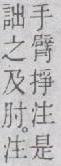 手臂掙注是
詘之及肘。注